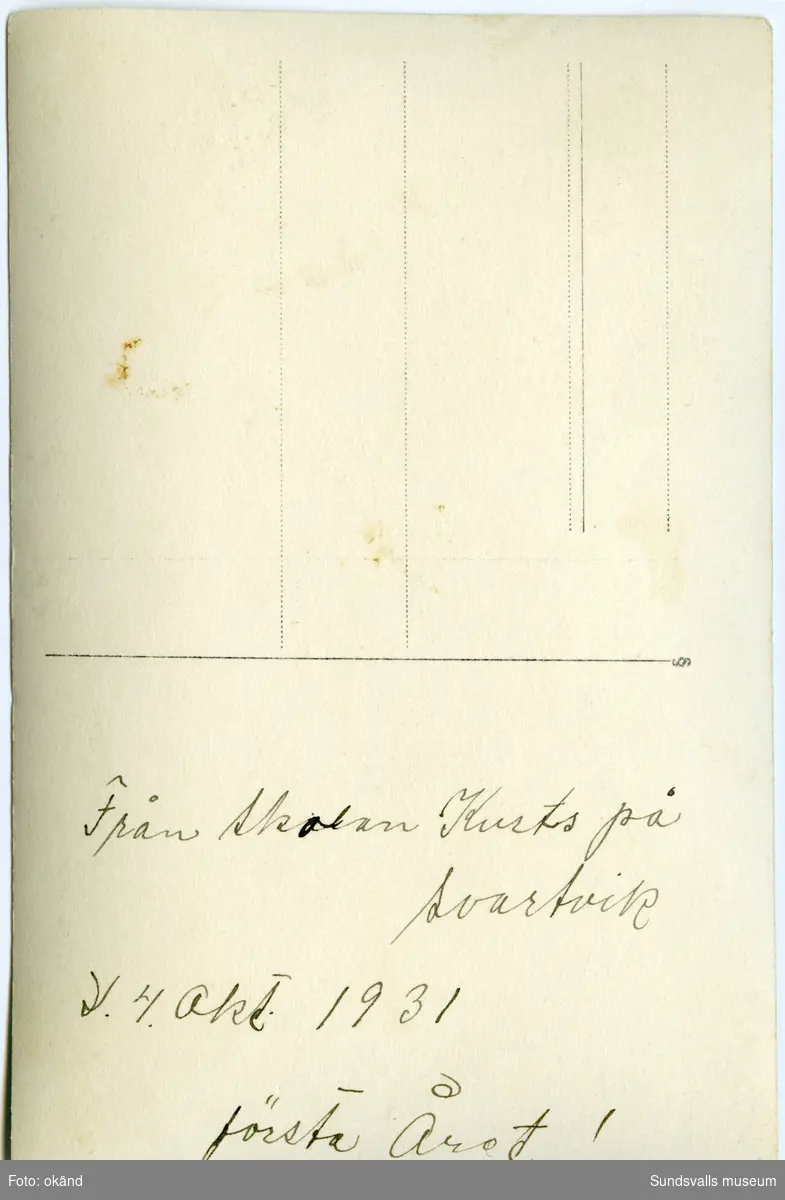 Från skolan Kusts på
svartvik
D. 4. Okt. 1931
första Året !
Foto: okänd
Sundsvalls museum